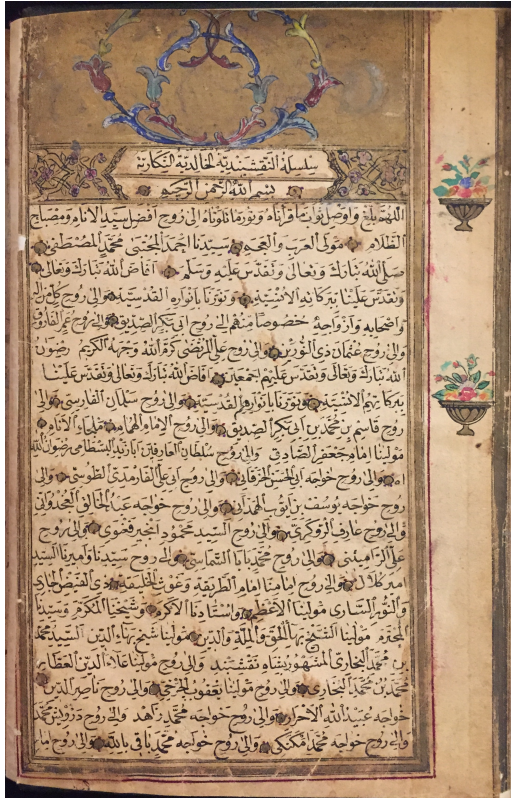 سلسلة النقشبندية الخالدية
بسم الله الرحمن الرحيم
اللهم بلغ واوصل ثواب ما قرأناه ونور ما تلوناه الى روح افضل سيد الانام ومصباح
الظلام مولى العرب والعجم سيدنا احمد المجتبى محمد المصطفى
صلى الله تبارك وتعالى وتقدس عليه وسلم افاض الله تبارك وتعالى
وتقدس علينا بركاته الانسية ونورنا بانواره القدسية والى روح
واصحابه وازواجه خصوصا منهم الى روح ابى بكر الصديق والى روح عمر الفاروق
والى روح عثمان ذى النورين والى روح على المرتضى كرم الله وجهه الكريم رضوان
الله تبارك وتعالى وتقدس عليهم اجمعين افاض الله تبارك وتعالى وتقدس علينا
بركاتهم الانسية ونورنا بانوارهم القدسية والى روح سلمان الفارسى والى
روح قاسم بن محمد بن ابى بكر الصديق والى روح الامام الهمام الانام
مولينا امام جعفر الصادق والى روح سلطان العارفين ابا يزيد البسطامى رضوان الله
والى روح خواجه ابى الحسن الخرقانى والى روح ابى على الفارمدى الطوسى والى
روح خواجه يوسف بن ايوب الهمدانى والى روح خواجه عبد الخالق الغجدوانى
والى روح عارف الريوكرى والى روح السيد محمود انجير فغنوى والى روح
على الراميتنى والى روح محمد بابا السماسى والى روح سيدنا واميرنا السيد
امير كلال والى روح امامنا امام الطريقه وغوث الخليقه ذى الفيض الجارى
والنور السارى مولينا الاعظم واستادنا الاكرم وشيخنا المكرم وسيدنا
المحترم مولينا الشيخ بهاء الحق والملة والدين مولينا شيخ بهاء الدين السيد محمد
بن محمد البخارى المشهور بشاه نقشبند والى روح مولينا علاء الدين العطار
محمد بن محمد البخارى والى روح مولينا يعقوب الچرخى والى روح ناصر الدين
خواجه عبيد الله الاحرار والى روح خواجه محمد زاهد والى روح درويش محمد
والى روح خواجه محمد امكنكى والى روح خواجه محمد باقى بالله والى روح امام